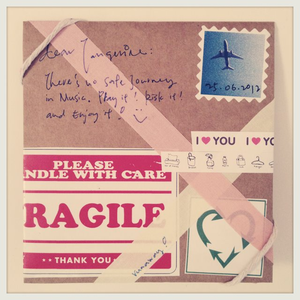 Dear Tangerine:
There's no safe journey
in Music. Play it! Rock it!
and Enjoy it!
25.06.2012
I ♥ YOU I ♥ YO
PLEASE
NDLE WITH CARE
RAGILE
•• THANK YOU